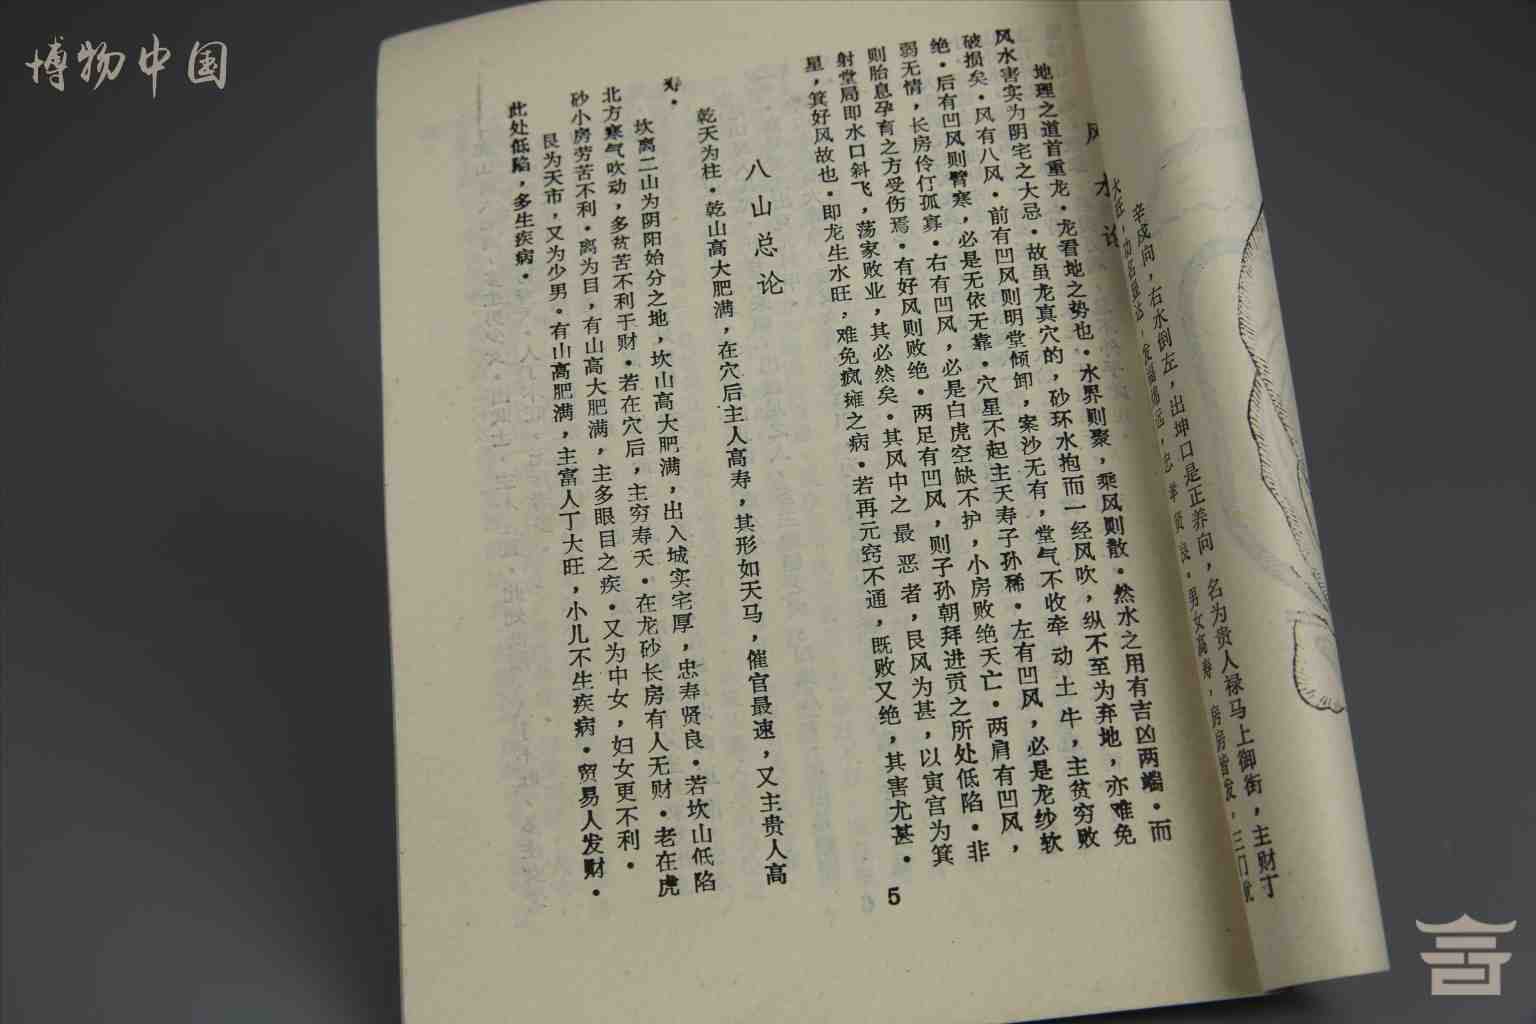 博物中国
辛戌向，右水倒左，出坤口是正养向，名为贵人禄马上御街，主财丁
风水论
地理之道首重龙。龙看地之势也。水界则聚，乘风则散。然水之用有吉凶两端。而
风水害实为阴宅之大忌。故虽龙真穴的，砂环水抱而一经风吹，纵不至为弃地，亦难免
破损矣。风有八风。前有凹风则明堂倾卸，案沙无有，堂气不收牵动土牛，主贫穷败
绝。后有凹风则臂寒，必是无依无靠。穴星不起主夭寿子孙稀。左有凹风，必是龙纱软
弱无情，长房伶仃孤寡。右有凹风，必是白虎空缺不护，小房败绝夭亡。两肩有凹风，
则胎息孕育之方受伤焉。有好风则败绝。两足有凹风，则子孙朝拜进贡之所处低陷。非
射堂局即水口斜飞，荡家败业，其必然矣。其风中之最恶者，艮风为甚，以寅宫为箕
星，箕好风故也。即龙生水旺，难免疯瘫之病。若再元窍不通，既败又绝，其害尤甚。
八山总论
乾天为柱。乾山高大肥满，在穴后主人高寿，其形如天马，催官最速，又主贵人高
寿。
坎离二山为阴阳始分之地，坎山高大肥满，出入城实宅厚，忠寿贤良。若坎山低陷
北方寒气吹动，多贫苦不利于财。若在穴后，主穷寿夭。在龙砂长房有人无财。老在虎
砂小房劳苦不利。离为目，有山高大肥满，主多眼目之疾。又为中女，妇女更不利。
艮为天市，又为少男。有山高肥满，主富人丁大旺，小儿不生疾病。贸易人发财。
此处低陷，多生疾病。
5